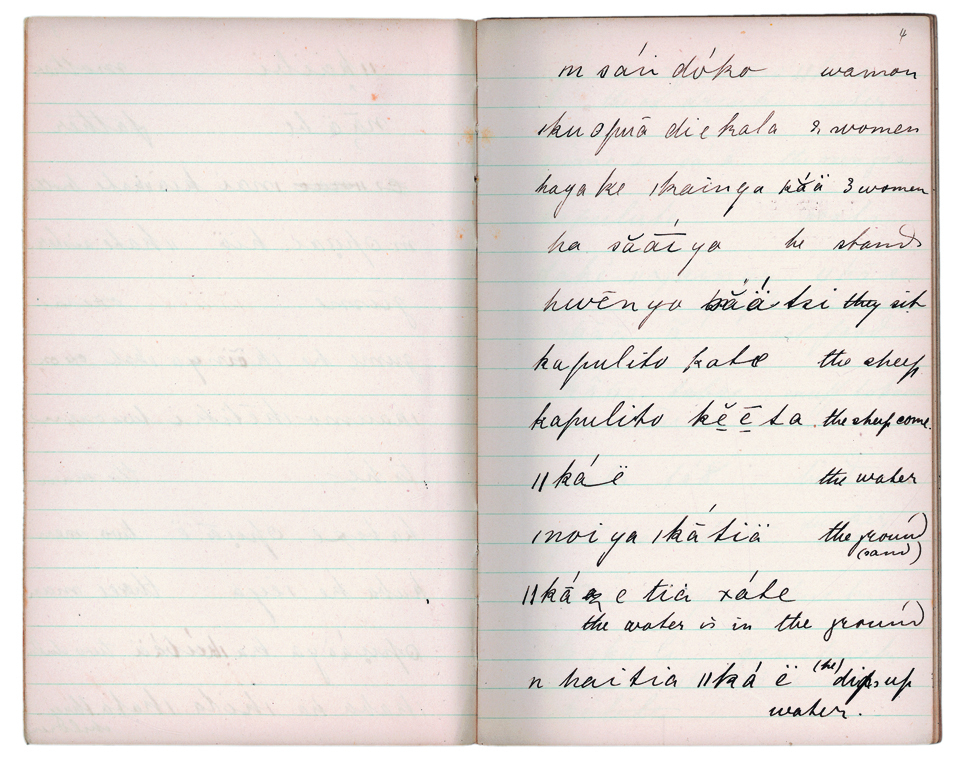 4
m sán dóko woman
ıkuopuā diekala 2 women
hayake ıkainya káä 3 women
ha săāíya he stands
hwēnyo ăä tsi they sit
kapulito kate the sheep
kapulito kĕēta the sheep come.
ǁkáë the water
ınoiya ıkātiä the ground
(sand)
ǁká e tia xáte
the water is in the ground
n haitia ǁkáë (he) dips up
water.